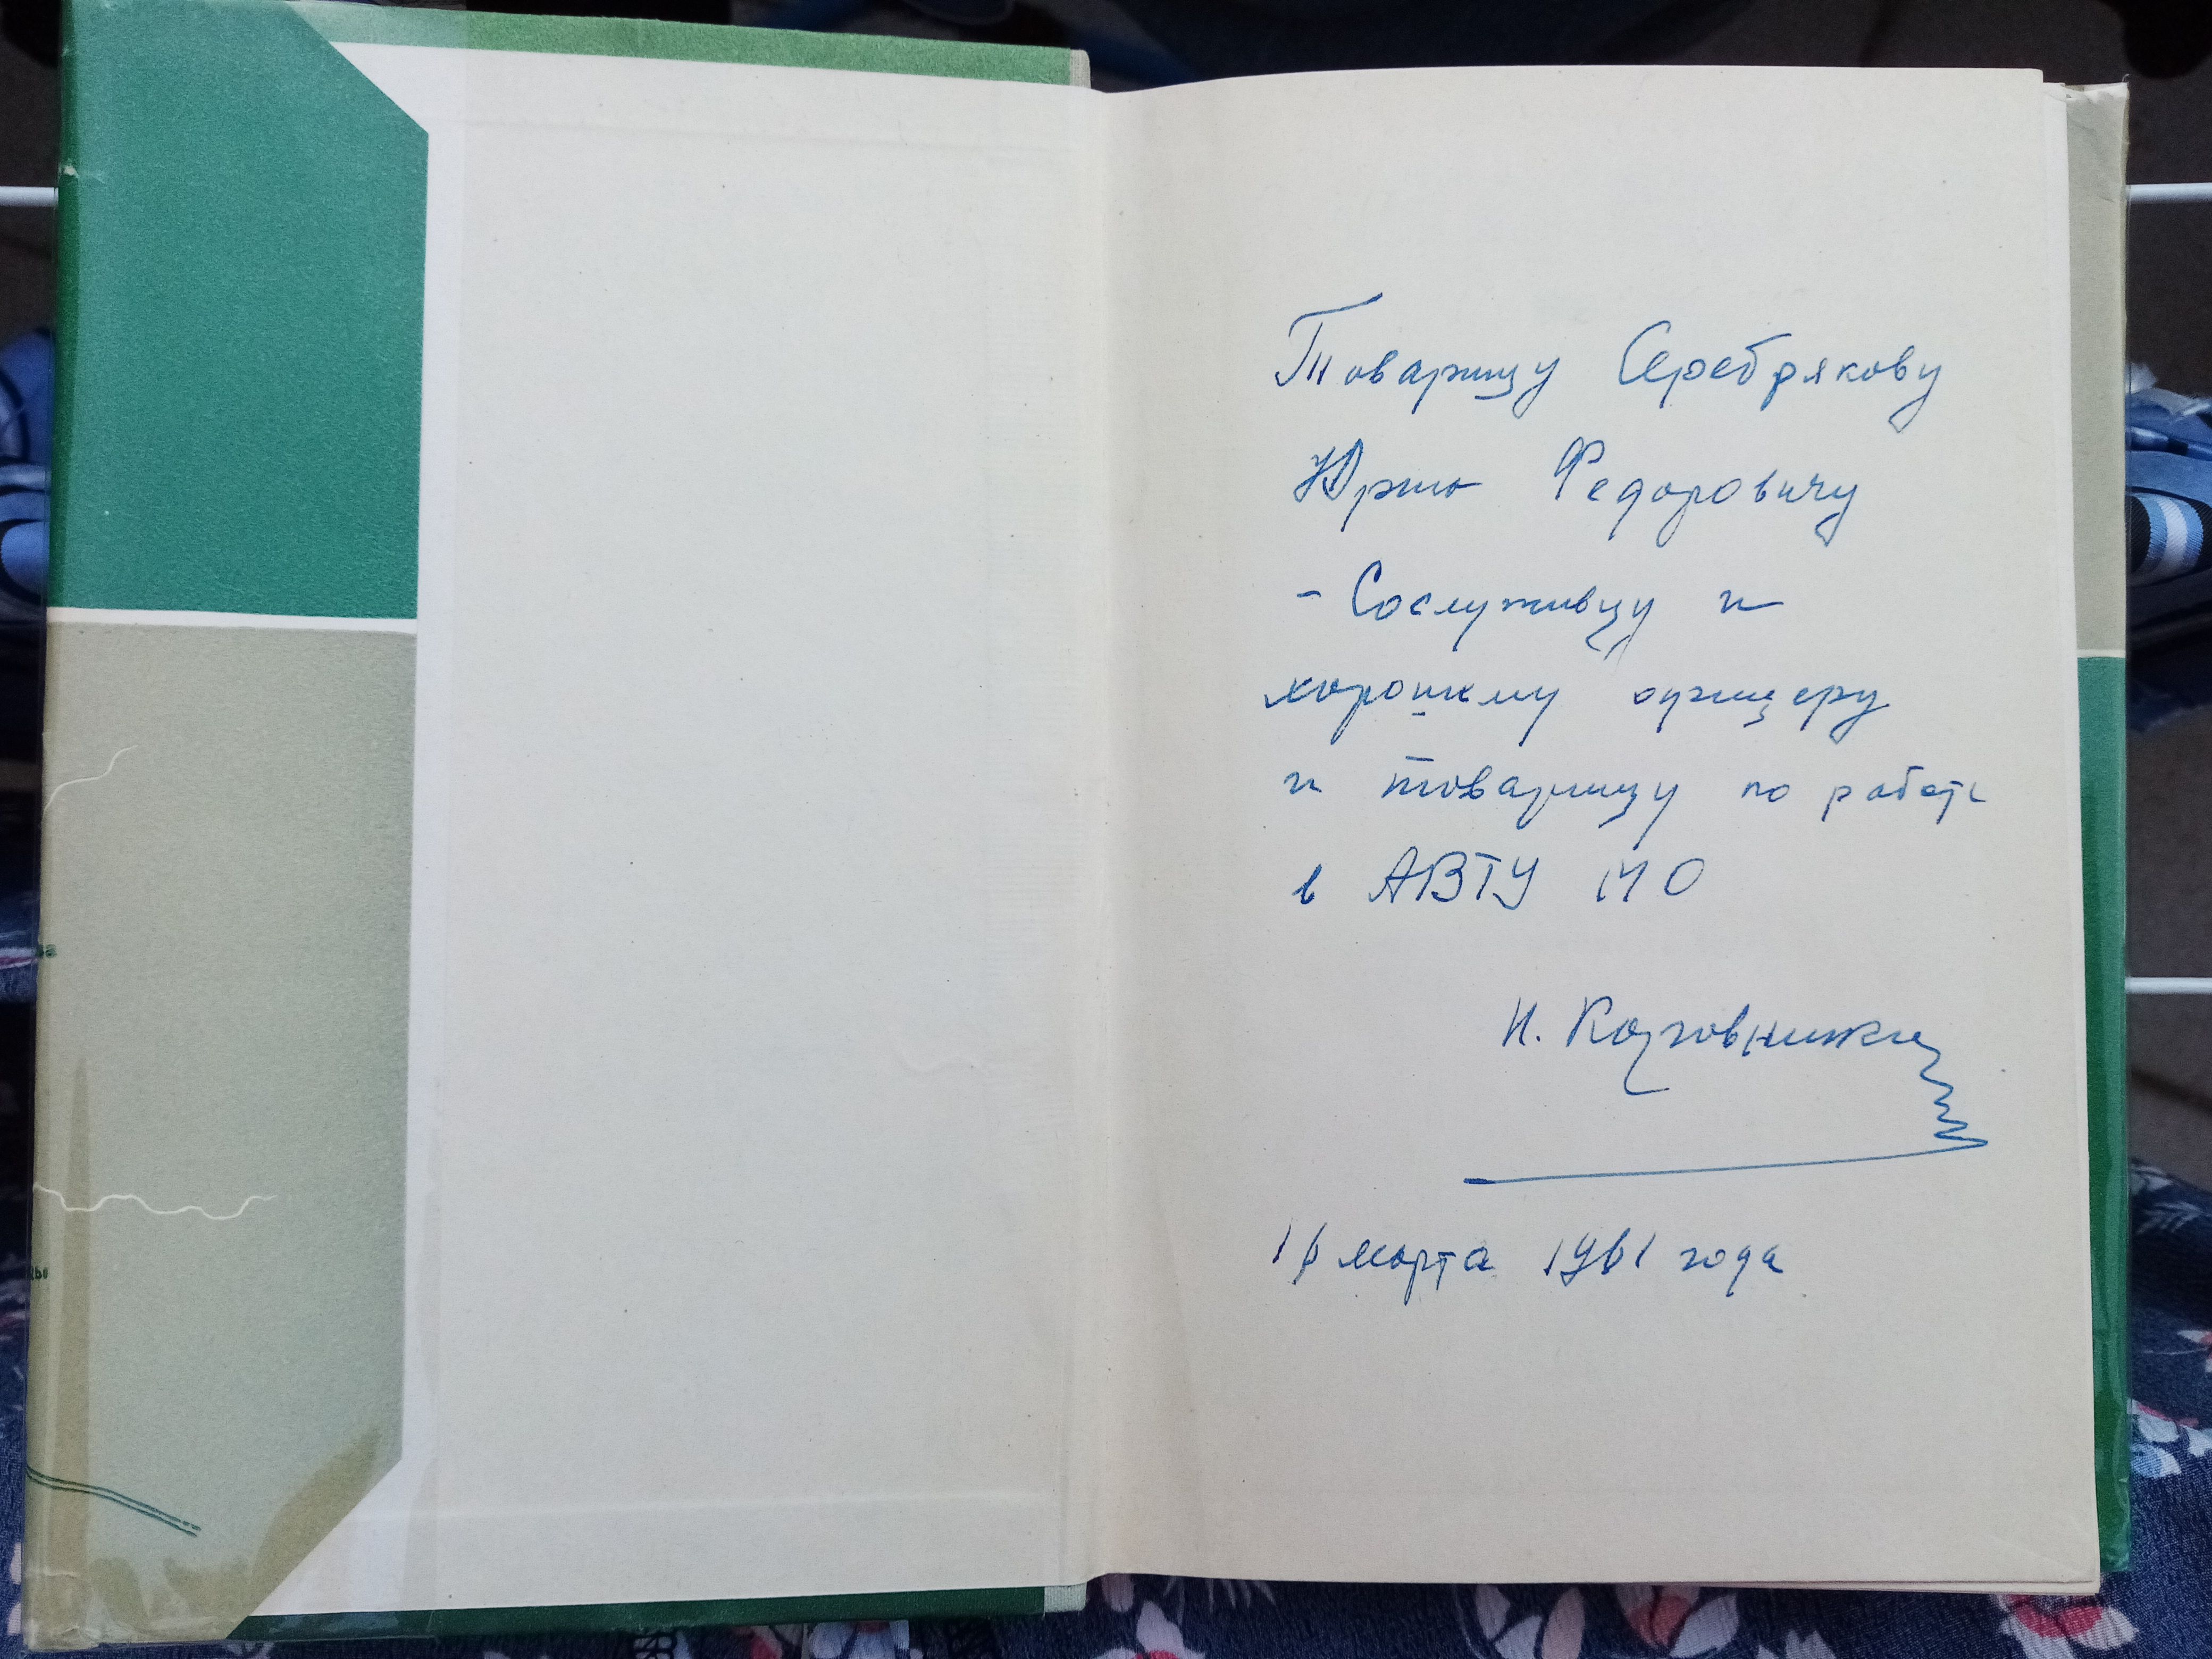 Товарищу Серебрякову
Юрию Федоровичу
- Сослуживцу и
хорошему офицеру
и товарищу по работе
в АВТУ МО
Н.
марта 1961 года